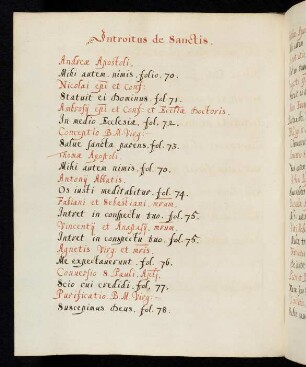 Introitus de Sanctis.
Andreæ Apostoli.
Mihi autem nimis. folio. 70.
Nicolai epi et Conf:
Statuit ei Dominus. fol 71.
Ambrosij epi et Conf: et Ecclia Doctoris.
In medio Ecclesiæ. fol. 72.
Conceptio B.M.Virg:
Salue sancta parens. fol. 73.
Thomæ Apostoli.
Mihi autem nimis. fol. 70.
Antonij Abbatis.
Os iusti meditabitur. fol. 74.
Fabiani et Sebastiani. mrum.
Intret in conspectu tuo. fol. 75.
Vincentij et Anastasij, mrum.
Intret in conspectu tuo. fol. 75.
Agnetis Virg. et mris.
Me expectauerunt. fol. 76.
Conuersio S. Pauli. Apli.
Scio cui credidi. fol. 77.
Purificatio B.M. Virg:
Suscepimus Deus. fol. 78.